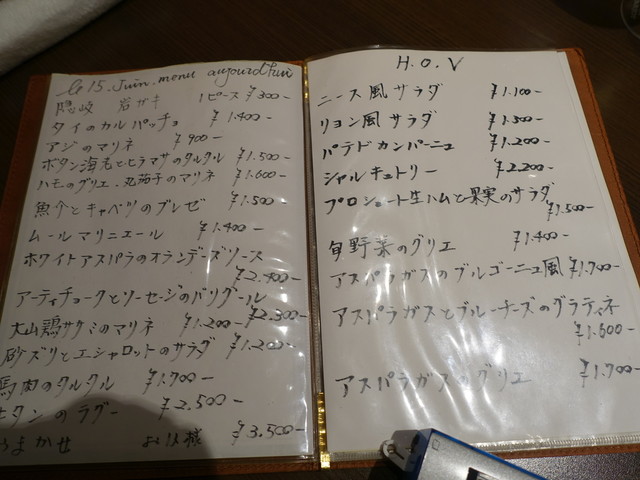 le 15. Juin. menu aujourd'hui
隠岐 岩ガキ 1ピース ¥300-
タイのカルパッチョ ¥1.400-
アジのマリネ ¥900-
ボタン海老とヒラマサのタルタル ¥1.500-
ハモのグリエ、丸茄子のマリネ ¥1.600-
魚介とキャベツのブレゼ ¥1.500-
ムールマリニエール ¥1.400-
ホワイトアスパラのオランデーズソース
¥2.400-
アーティチョークとソーセージのバリグール
¥2.300-
大山鶏ササミのマリネ ¥1.200-
砂ズリとエシャロットのサラダ ¥1.200-
馬肉のタルタル ¥1.700-
牛タンのラグー ¥2.500-
おまかせ お1人様 ¥3.500-
H.O.V
ニース風サラダ ¥1.100-
リヨン風サラダ ¥1.500-
パテドカンパーニュ ¥1.200-
シャルキュトリー ¥2.200-
プロシュート生ハムと果実のサラダ
¥1.500-
旬野菜のグリエ ¥1.400-
アスパラガスのブルゴーニュ風 ¥1.700-
アスパラガスとブルーチーズのグラティネ
¥1.600-
アスパラガスのグリエ ¥1.700-